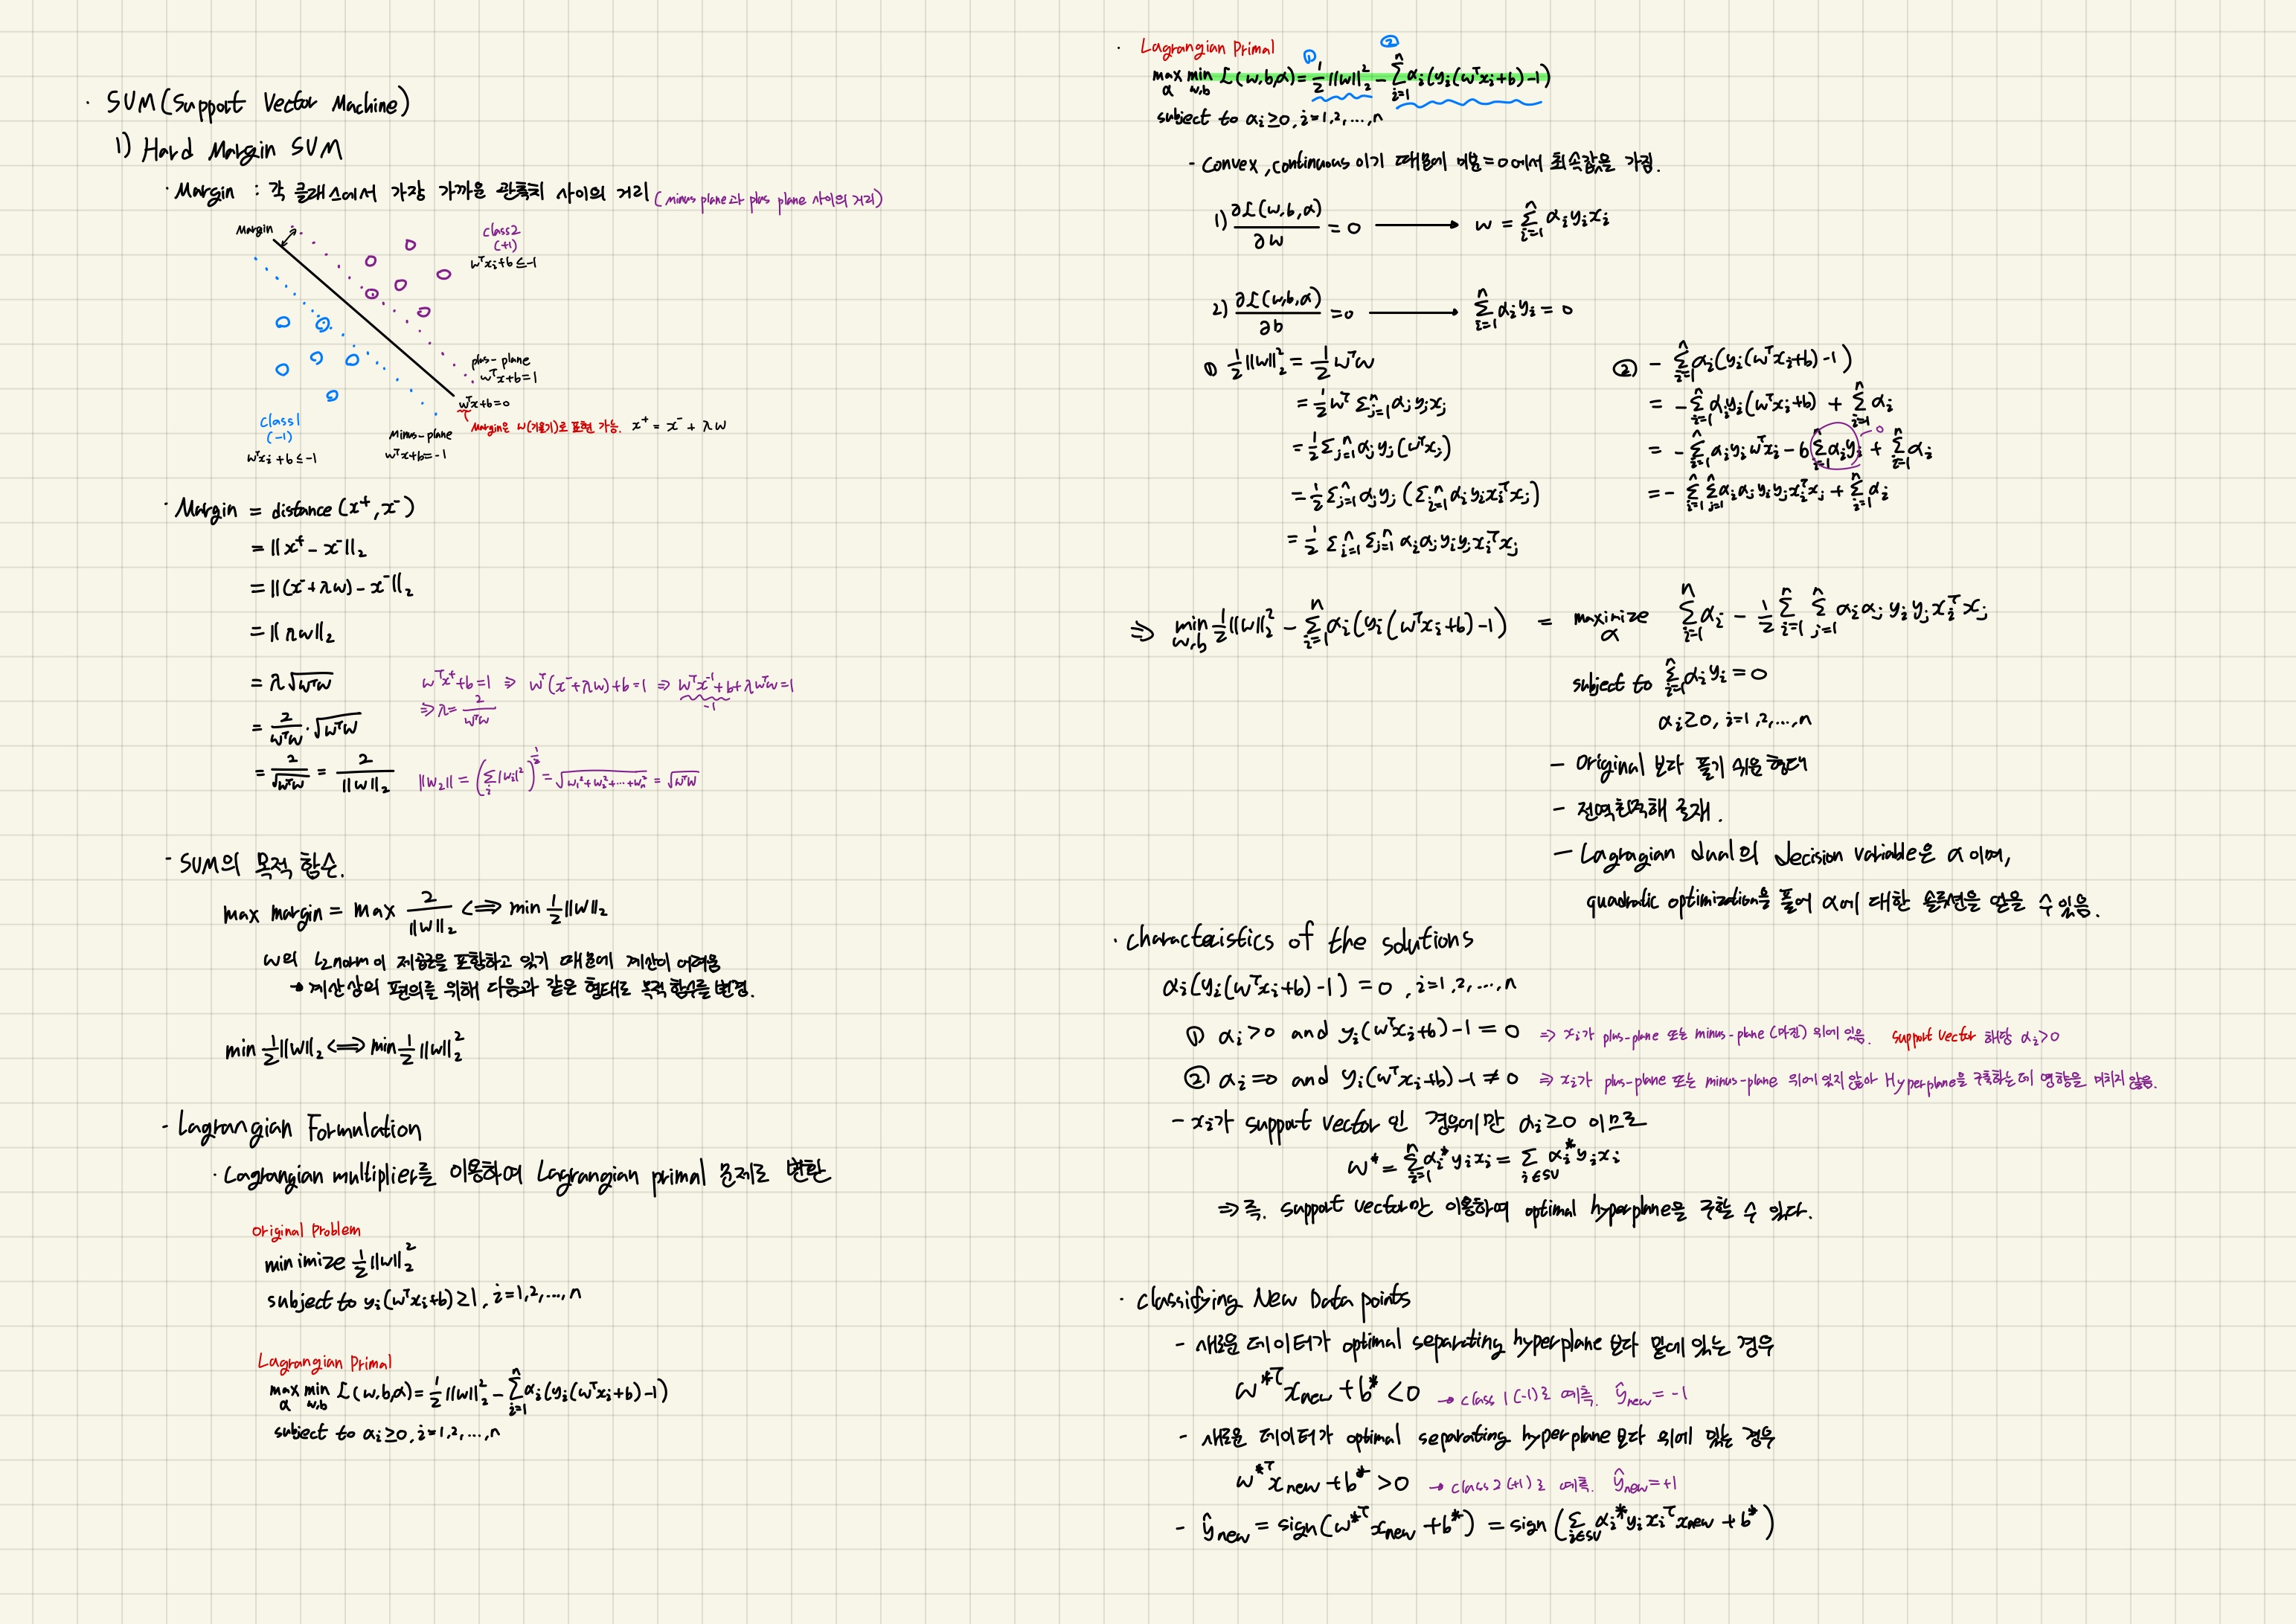 · SVM(Support Vector Machine)
1) Hard Margin SVM
· Margin : 각 클래스에서 가장 가까운 관측치 사이의 거리 (minus plane과 plus plane 사이의 거리)
Margin
class2
(+1)
wᵀxᵢ+b ≤ -1
plus-plane
wᵀx+b=1
wᵀx+b=0
Margin은 w(기울기)로 표현 가능. x⁺ = x⁻ + λw
class1
(-1)
wᵀxᵢ+b ≤ -1
Minus-plane
wᵀx+b=-1
· Margin = distance(x⁺, x⁻)
= ||x⁺ - x⁻||₂
= ||(x⁻+λw) - x⁻||₂
= ||λw||₂
= λ√(wᵀw)
wᵀx⁺+b=1 ⇒ wᵀ(x⁻+λw)+b=1 ⇒ wᵀx⁻¹+b+λwᵀw=1
-1
⇒ λ= 2/(wᵀw)
= 2/(wᵀw) · √(wᵀw)
= 2/√(wᵀw) = 2/||w||₂
||w₂|| = (Σᵢ|wᵢ|²)^(1/2) = √(w₁²+w₂²+···+wₙ²) = √(wᵀw)
- SVM의 목적 함수.
max margin = max 2/||w||₂ <⇒ min ½||w||₂
w의 L2norm이 제곱근을 포함하고 있기 때문에 계산이 어려움
→ 계산상의 편의를 위해 다음과 같은 형태로 목적 함수를 변경.
min ½||w||₂ <⇒ min ½||w||₂²
- Lagrangian Formulation
· Lagrangian multiplier를 이용하여 Lagrangian primal 문제로 변환
Original Problem
minimize ½||w||₂²
subject to yᵢ(wᵀxᵢ+b) ≥ 1, i=1,2,...,n
Lagrangian Primal
max_α min_{w,b} L(w,b,α) = ½||w||₂² - Σᵢ₌₁ⁿ αᵢ(yᵢ(wᵀxᵢ+b)-1)
subject to αᵢ≥0, i=1,2,...,n
· Lagrangian Primal
① ②
max_α min_{w,b} L(w,b,α) = ½||w||₂² - Σᵢ₌₁ⁿ αᵢ(yᵢ(wᵀxᵢ+b)-1)
subject to αᵢ≥0, i=1,2,...,n
- Convex, continuous 이기 때문에 미분=0에서 최솟값을 가짐.
1) ∂L(w,b,α)/∂w = 0 → w = Σᵢ₌₁ⁿ αᵢyᵢxᵢ
2) ∂L(w,b,α)/∂b = 0 → Σᵢ₌₁ⁿ αᵢyᵢ = 0
① ½||w||₂² = ½wᵀw
= ½wᵀ Σⱼ₌₁ⁿ αⱼyⱼxⱼ
= ½ Σⱼ₌₁ⁿ αⱼyⱼ(wᵀxⱼ)
= ½ Σⱼ₌₁ⁿ αⱼyⱼ(Σᵢ₌₁ⁿ αᵢyᵢxᵢᵀxⱼ)
= ½ Σᵢ₌₁ⁿ Σⱼ₌₁ⁿ αᵢαⱼyᵢyⱼxᵢᵀxⱼ
② - Σᵢ₌₁ⁿ αᵢ(yᵢ(wᵀxᵢ+b)-1)
= - Σᵢ₌₁ⁿ αᵢyᵢ(wᵀxᵢ+b) + Σᵢ₌₁ⁿ αᵢ
= - Σᵢ₌₁ⁿ αᵢyᵢwᵀxᵢ - b Σᵢ₌₁ⁿ αᵢyᵢ + Σᵢ₌₁ⁿ αᵢ
0
= - Σᵢ₌₁ⁿ Σⱼ₌₁ⁿ αᵢαⱼyᵢyⱼxᵢᵀxⱼ + Σᵢ₌₁ⁿ αᵢ
⇒ min_{w,b} ½||w||₂² - Σᵢ₌₁ⁿ αᵢ(yᵢ(wᵀxᵢ+b)-1) = maximize_α Σᵢ₌₁ⁿ αᵢ - ½ Σᵢ₌₁ⁿ Σⱼ₌₁ⁿ αᵢαⱼyᵢyⱼxᵢᵀxⱼ
subject to Σᵢ₌₁ⁿ αᵢyᵢ = 0
αᵢ≥0, i=1,2,...,n
- Original 보다 풀기 쉬운 형태
- 전역최적해 존재.
- Lagragian dual의 decision variable은 α 이며,
quadratic optimization을 풀어 α에 대한 솔루션을 얻을 수 있음.
· characteristics of the solutions
αᵢ(yᵢ(wᵀxᵢ+b)-1) = 0, i=1,2,...,n
① αᵢ>0 and yᵢ(wᵀxᵢ+b)-1 = 0 ⇒ xᵢ가 plus-plane 또는 minus-plane (마진) 위에 있음. support vector 해당 αᵢ>0
② αᵢ=0 and yᵢ(wᵀxᵢ+b)-1 ≠ 0 ⇒ xᵢ가 plus-plane 또는 minus-plane 위에 있지 않아 Hyperplane을 구축하는데 영향을 미치지 않음.
- xᵢ가 support vector 인 경우에만 αᵢ≥0 이므로
w* = Σᵢ₌₁ⁿ αᵢ*yᵢxᵢ = Σ_{i∈SV} αᵢ*yᵢxᵢ
⇒ 즉. support vector만 이용하여 optimal hyperplane을 구할 수 있다.
· classifying New Data points
- 새로운 데이터가 optimal separating hyperplane 보다 밑에 있는 경우
w*ᵀxnew + b* < 0 → class 1 (-1)로 예측. ŷnew = -1
- 새로운 데이터가 optimal separating hyperplane 보다 위에 있는 경우
w*ᵀxnew + b* > 0 → class 2 (+1)로 예측. ŷnew = +1
- ŷnew = sign(w*ᵀxnew + b*) = sign(Σ_{i∈SV} αᵢ*yᵢxᵢᵀxnew + b*)